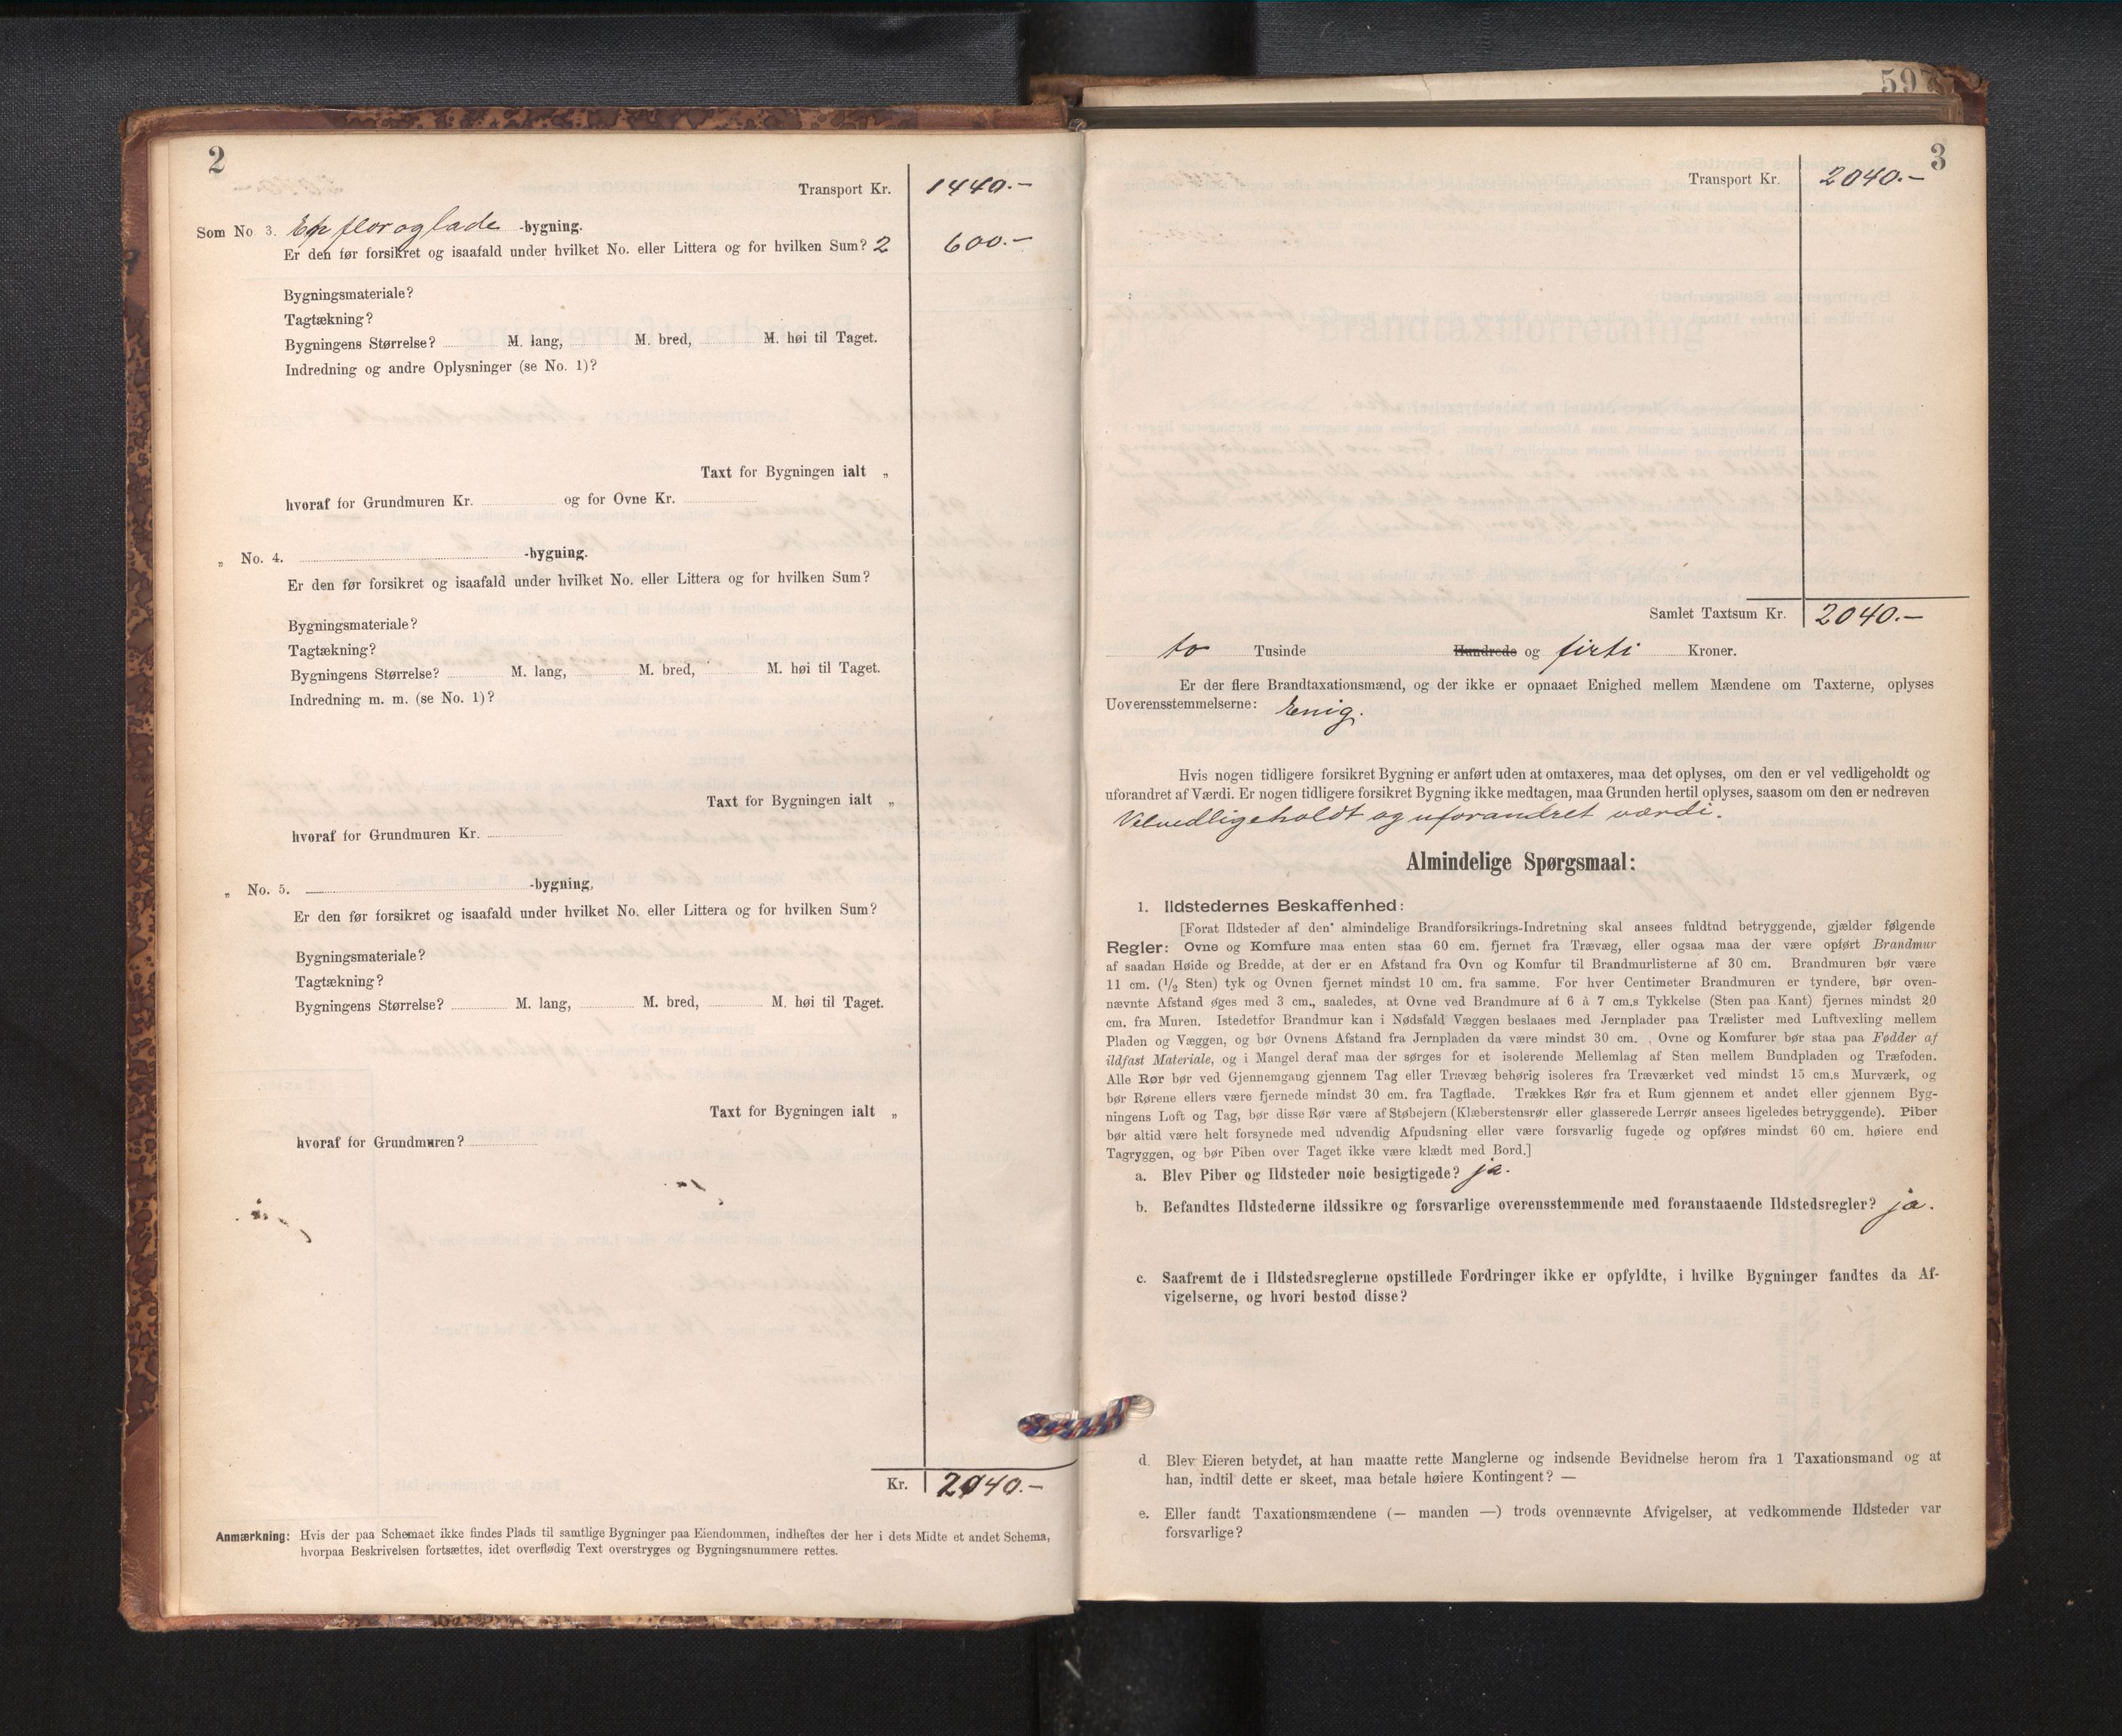 2
Transport Kr. 1440.-
Som No 3. En flor og lade -bygning.
Er den før forsikret og isaafald under hvilket No. eller Littera og for hvilken Sum? 2 600.-
Bygningsmateriale?
Tagtækning?
Bygningens Størrelse? M. lang, M. bred, M. høi til Taget.
Indredning og andre Oplysninger (se No. 1)?
Taxt for Bygningen ialt „
hvoraf for Grundmuren Kr. og for Ovne Kr.
„ No. 4. -bygning.
Er den før forsikret og isaafald under hvilket No. eller Littera og for hvilken Sum?
Bygningsmateriale?
Tagtækning?
Bygningens Størrelse? M. lang, M. bred, M. høi til Taget.
Indredning m. m. (se No. 1)?
Taxt for Bygningen ialt „
hvoraf for Grundmuren Kr.
„ No. 5. -bygning,
Er den før forsikret og isaafald under hvilket No. eller Littera og for hvilken Sum?
Bygningsmateriale?
Tagtækning?
Bygningens Størrelse? M. lang, M. bred, M. høi til Taget.
Taxt for Bygningen ialt „
hvoraf for Grundmuren?
Kr. 2040.-
Anmærkning: Hvis der paa Schemaet ikke findes Plads til samtlige Bygninger paa Eiendommen, indheftes der her i dets Midte et andet Schema,
hvorpaa Beskrivelsen fortsættes, idet overflødig Text overstryges og Bygningsnummere rettes.
597
3
Transport Kr. 2040.-
Samlet Taxtsum Kr. 2040.-
to Tusinde Hundrede og firti Kroner.
Er der flere Brandtaxationsmænd, og der ikke er opnaaet Enighed mellem Mændene om Taxterne, oplyses
Uoverensstemmelserne: Enig.
Hvis nogen tidligere forsikret Bygning er anført uden at omtaxeres, maa det oplyses, om den er vel vedligeholdt og
uforandret af Værdi. Er nogen tidligere forsikret Bygning ikke medtagen, maa Grunden hertil oplyses, saasom om den er nedreven
Velvedligeholdt og uforandret værdi.
Almindelige Spørgsmaal:
1. Ildstedernes Beskaffenhed:
[Forat Ildsteder af den almindelige Brandforsikrings-Indretning skal ansees fuldtud betryggende, gjælder følgende
Regler: Ovne og Komfure maa enten staa 60 cm. fjernet fra Trævæg, eller ogsaa maa der være opført Brandmur
af saadan Høide og Bredde, at der er en Afstand fra Ovn og Komfur til Brandmurlisterne af 30 cm. Brandmuren bør være
11 cm. (1/2 Sten) tyk og Ovnen fjernet mindst 10 cm. fra samme. For hver Centimeter Brandmuren er tyndere, bør oven-
nævnte Afstand øges med 3 cm., saaledes, at Ovne ved Brandmure af 6 à 7 cm.s Tykkelse (Sten paa Kant) fjernes mindst 20
cm. fra Muren. Istedetfor Brandmur kan i Nødsfald Væggen beslaaes med Jernplader paa Trælister med Luftvexling mellem
Pladen og Væggen, og bør Ovnens Afstand fra Jernpladen da være mindst 30 cm. Ovne og Komfurer bør staa paa Fødder af
ildfast Materiale, og i Mangel deraf maa der sørges for et isolerende Mellemlag af Sten mellem Bundpladen og Træfoden.
Alle Rør bør ved Gjennemgang gjennem Tag eller Trævæg behørig isoleres fra Træverket ved mindst 15 cm.s Murværk, og
bør Rørene ellers være fjernede mindst 30 cm. fra Tagflade. Trækkes Rør fra et Rum gjennem et andet eller gjennem Byg-
ningens Loft og Tag, bør disse Rør være af Støbejern (Klæberstensrør eller glasserede Lerrør ansees ligeledes betryggende). Piber
bør altid være helt forsynede med udvendig Afpudsning eller være forsvarlig fugede og opføres mindst 60 cm. høiere end
Tagryggen, og bør Piben over Taget ikke være klædt med Bord.]
a. Blev Piber og Ildsteder nøie besigtigede? ja.
b. Befandtes Ildstederne ildssikre og forsvarlige overensstemmende med foranstaaende Ildstedsregler? ja.
c. Saafremt de i Ildstedsreglerne opstillede Fordringer ikke er opfyldte, i hvilke Bygninger fandtes da Af-
vigelserne, og hvori bestod disse?
d. Blev Eieren betydet, at han maatte rette Manglerne og indsende Bevidnelse herom fra 1 Taxationsmand og at
han, indtil dette er skeet, maa betale høiere Kontingent? —
e. Eller fandt Taxationsmændene (— manden —) trods ovennævnte Afvigelser, at vedkommende Ildsteder var
forsvarlige?